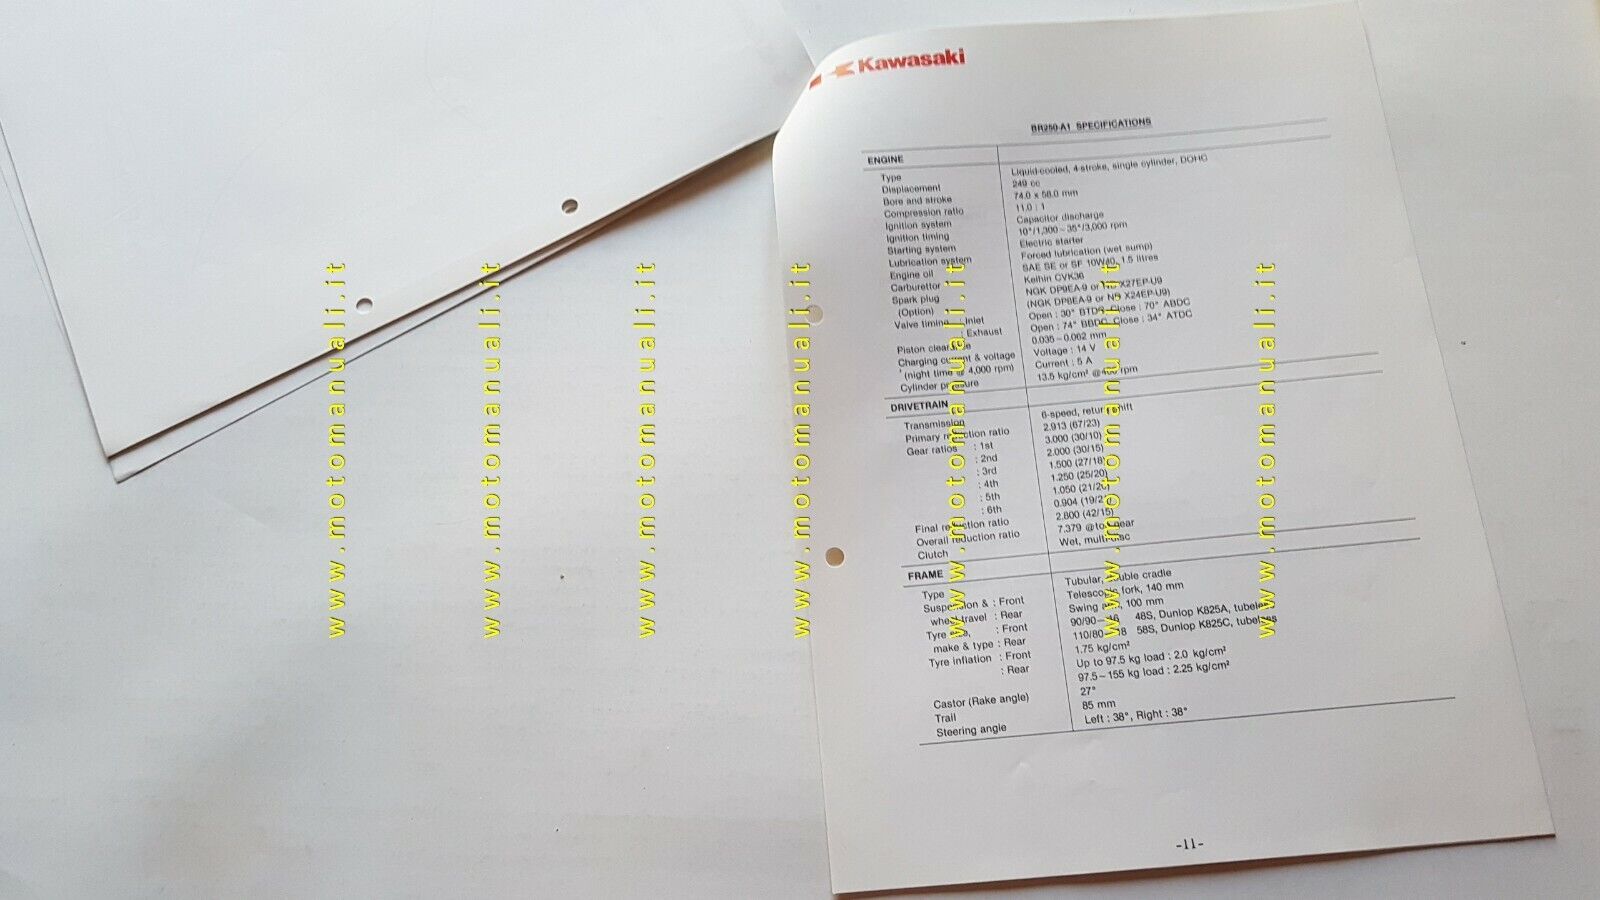 Kawasaki
BR250-A1 SPECIFICATIONS
ENGINE
Type Liquid-cooled, 4-stroke, single cylinder, DOHC
Displacement 249 cc
Bore and stroke 74.0 x 58.0 mm
Compression ratio 11.0 : 1
Ignition system Capacitor discharge
Ignition timing 10°/1,300~35°/3,000 rpm
Starting system Electric starter
Lubrication system Forced lubrication (wet sump)
Engine oil SAE SE or SF 10W40, 1.5 litres
Carburettor Keihin CVK36
Spark plug NGK DP9EA-9 or ND X27EP-U9
(Option) (NGK DP8EA-9 or ND X24EP-U9)
Valve timing : Inlet Open : 30° BTDC, Close : 70° ABDC
: Exhaust Open : 74° BBDC, Close : 34° ATDC
Piston clearance 0.035~0.062 mm
Charging current & voltage Voltage : 14 V
(night time @ 4,000 rpm) Current : 5 A
Cylinder pressure 13.5 kg/cm² @ rpm
DRIVETRAIN
Transmission 6-speed, return shift
Primary reduction ratio 2.913 (67/23)
Gear ratios : 1st 3.000 (30/10)
: 2nd 2.000 (30/15)
: 3rd 1.500 (27/18)
: 4th 1.250 (25/20)
: 5th 1.050 (21/20)
: 6th 0.904 (19/21)
Final reduction ratio 2.800 (42/15)
Overall reduction ratio 7.379 @top gear
Clutch Wet, multi-disc
FRAME
Type Tubular, double cradle
Suspension & : Front Telescopic fork, 140 mm
wheel travel : Rear Swing arm, 100 mm
Tyre size, : Front 90/90 48S, Dunlop K825A, tubeless
make & type : Rear 110/80 58S, Dunlop K825C, tubeless
Tyre inflation : Front 1.75 kg/cm²
: Rear Up to 97.5 kg load : 2.0 kg/cm²
97.5~155 kg load : 2.25 kg/cm²
Castor (Rake angle) 27°
Trail 85 mm
Steering angle Left : 38°, Right : 38°
-11-
www.motomanuali.it
www.motomanuali.it
www.motomanuali.it
www.motomanuali.it
www.motomanuali.it
www.motomanuali.it
www.motomanuali.it